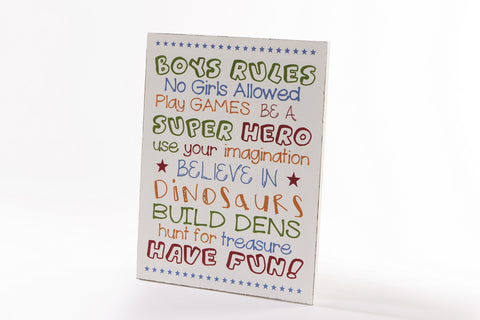 BOYS RULES
No Girls Allowed
Play GAMES BE A
SUPER HERO
use your imagination
BELIEVE IN
DINOSAURS
BUILD DENS
hunt for treasure
HAVE FUN!